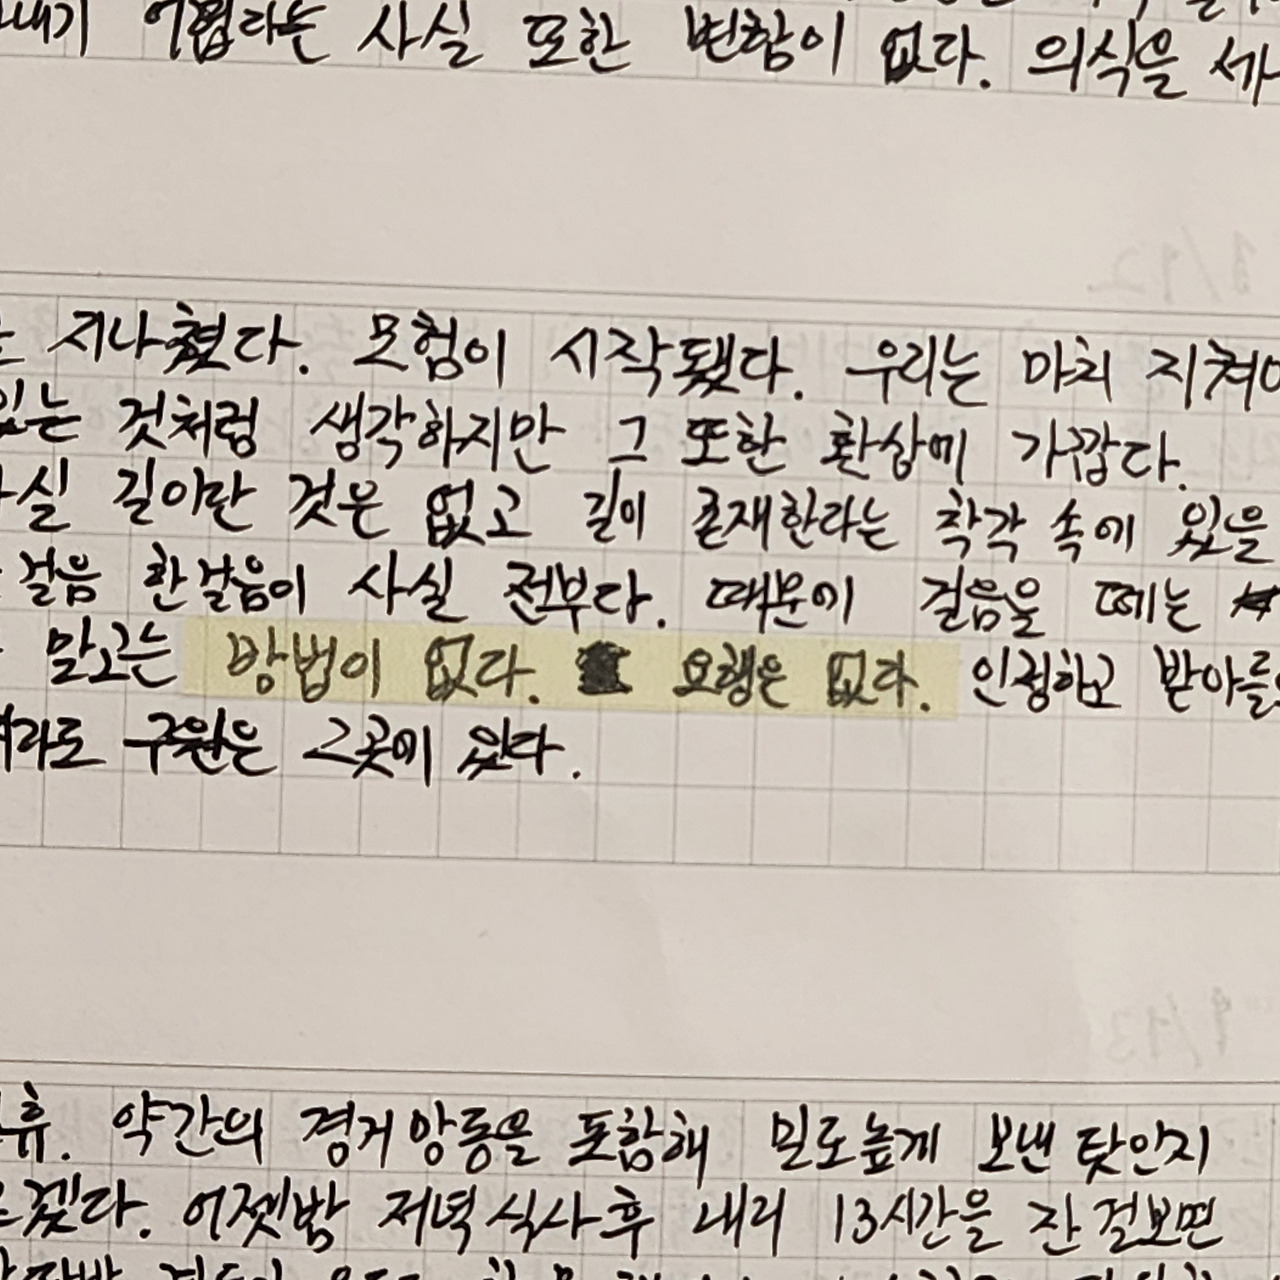 어렵다는 사실 또한 변함이 없다. 의식을
지나쳤다. 모험이 시작됐다. 우리는 마치 지켜야
있는 것처럼 생각하지만 그 또한 환상에 가깝다.
사실 길이란 것은 없고 길이 존재한다라는 착각 속에 있을
걸음 한걸음이 사실 전부다. 때문에 걸음을 떼는
말고는 방법이 없다. 요행은 없다. 인정하고 받아들
구원은 그곳에 있다.
1/12
1/13
약간의 경거망동을 포함해 밀도높게 보낸 탓인지
어젯밤 저녁식사후 내리 13시간을 잔 걸보면